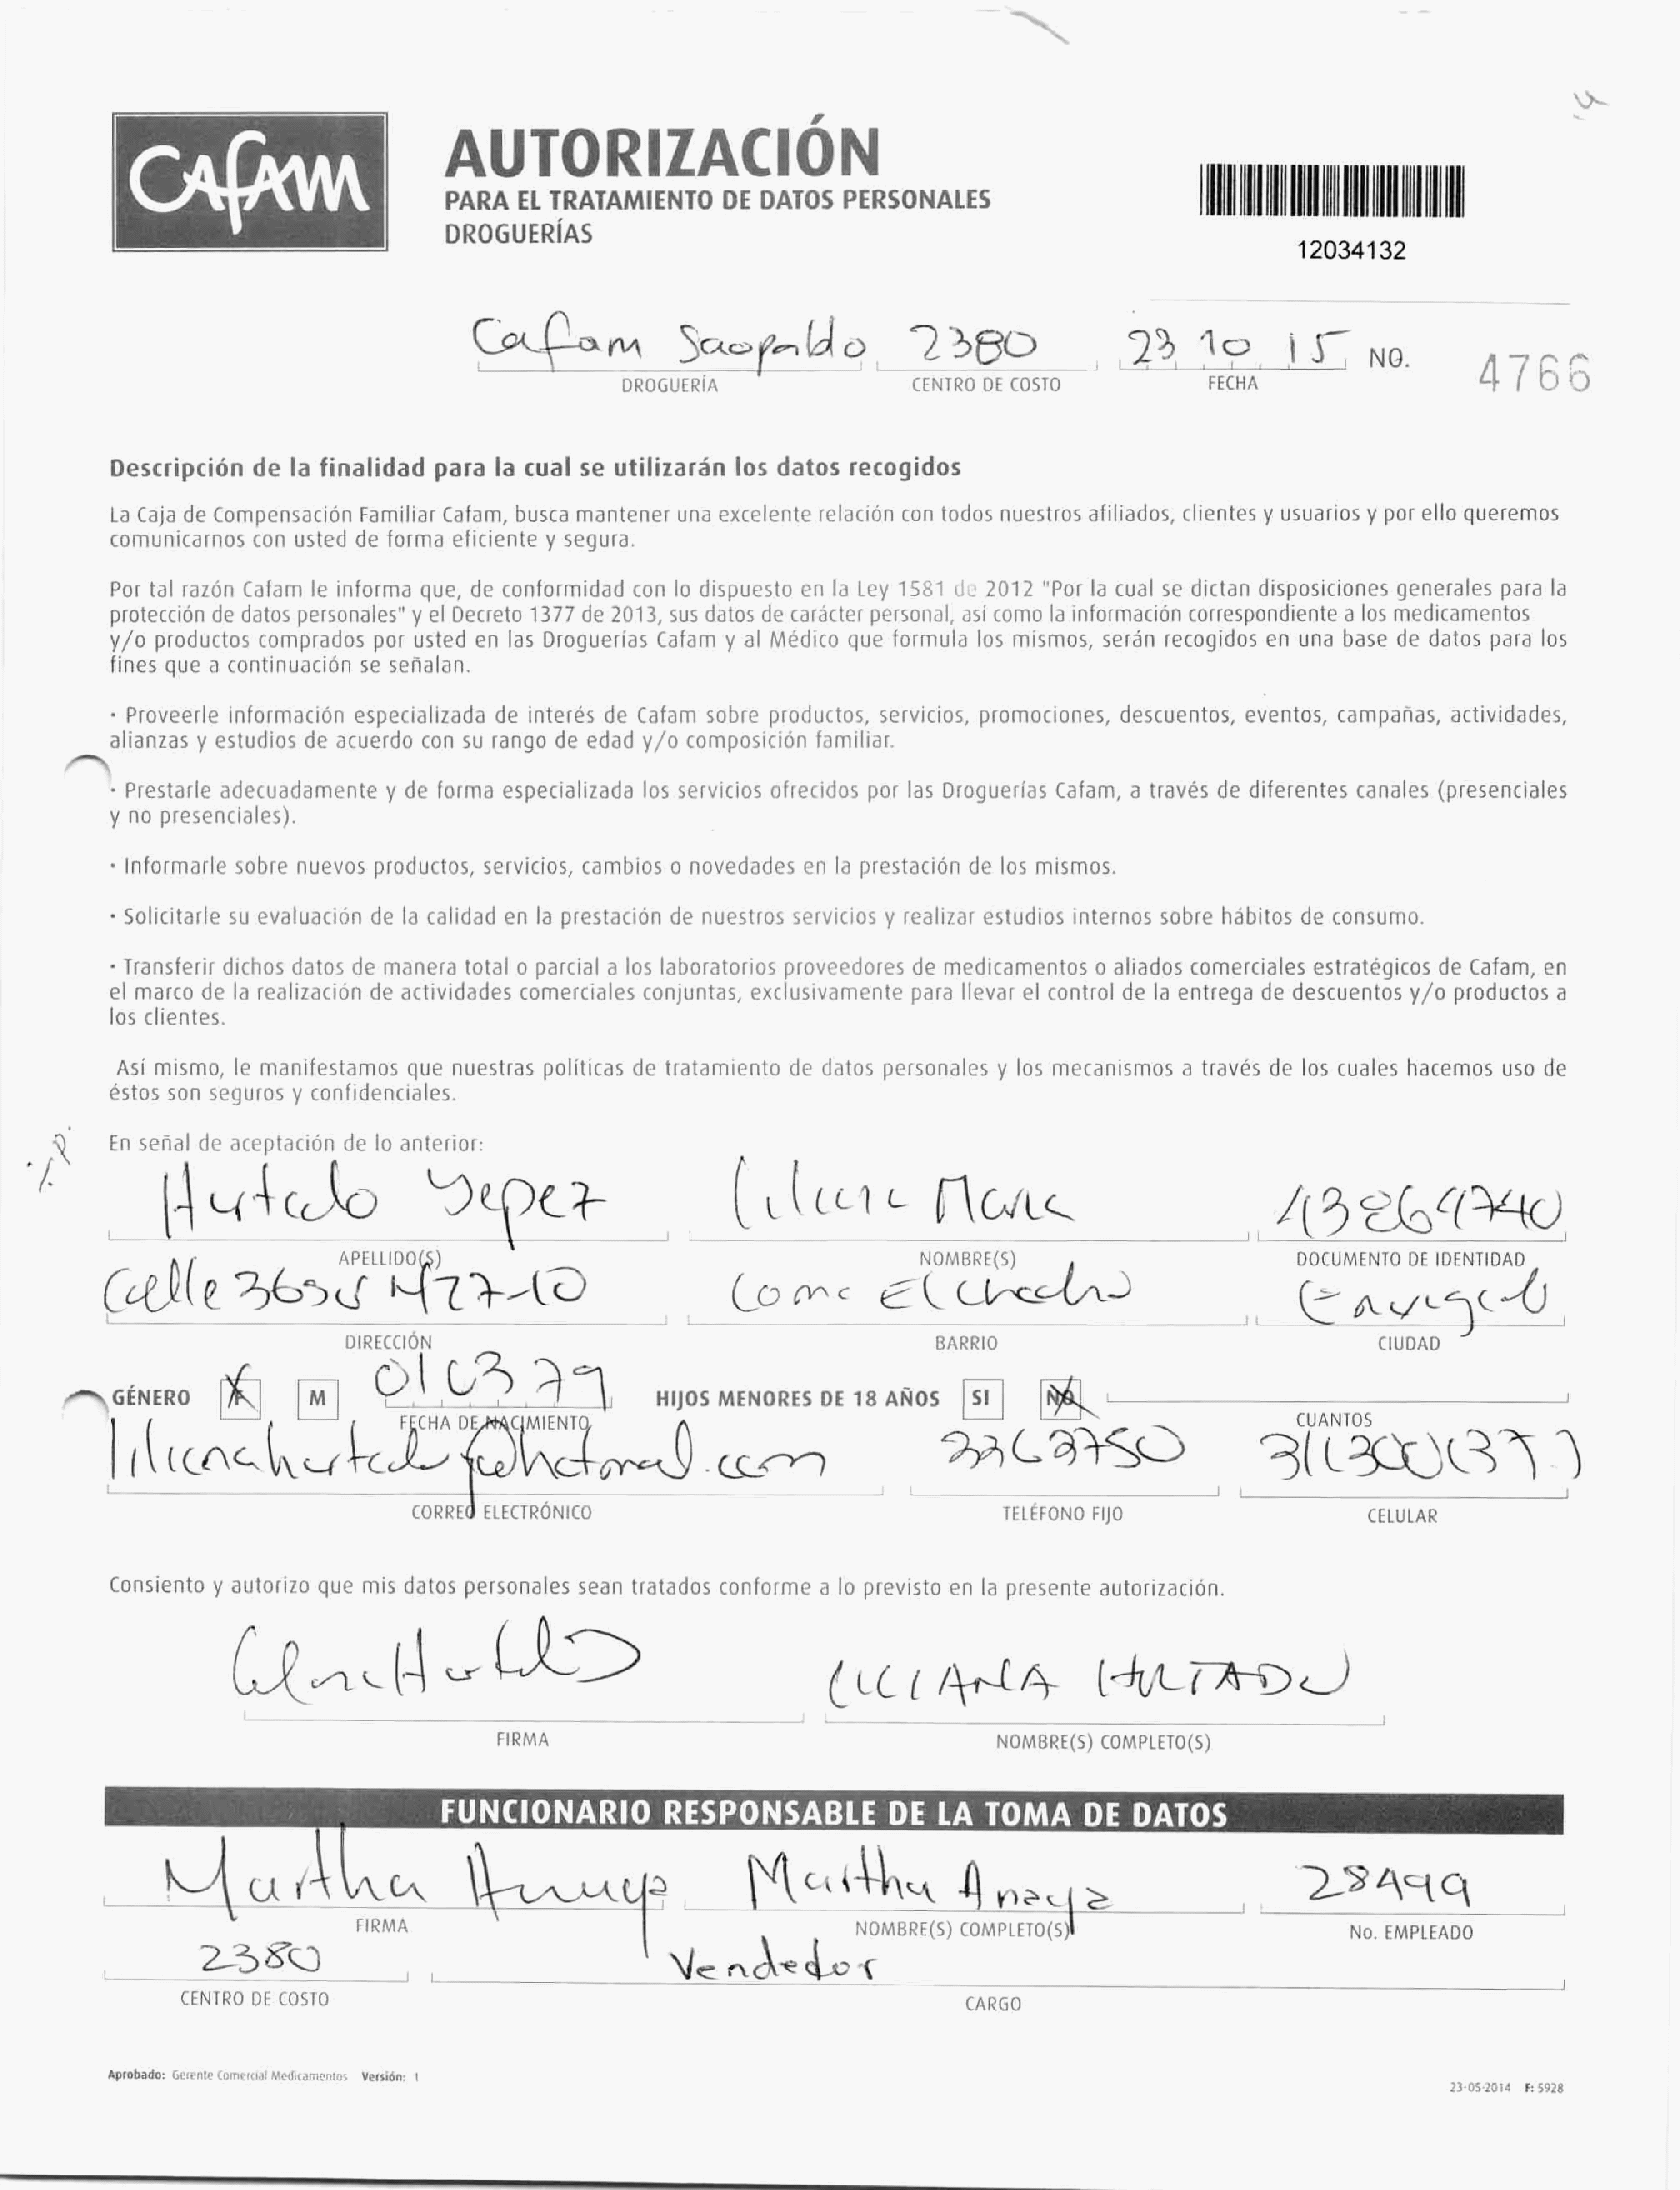 CAFAM
AUTORIZACIÓN
PARA EL TRATAMIENTO DE DATOS PERSONALES
DROGUERÍAS
12034132
Cafam 2380 23 10 15 NO. 4766
DROGUERÍA CENTRO DE COSTO FECHA
Descripción de la finalidad para la cual se utilizarán los datos recogidos
La Caja de Compensación Familiar Cafam, busca mantener una excelente relación con todos nuestros afiliados, clientes y usuarios y por ello queremos
comunicarnos con usted de forma eficiente y segura.
Por tal razón Cafam le informa que, de conformidad con lo dispuesto en la Ley 1581 de 2012 "Por la cual se dictan disposiciones generales para la
protección de datos personales" y el Decreto 1377 de 2013, sus datos de carácter personal, así como la información correspondiente a los medicamentos
y/o productos comprados por usted en las Droguerías Cafam y al Médico que formula los mismos, serán recogidos en una base de datos para los
fines que a continuación se señalan.
· Proveerle información especializada de interés de Cafam sobre productos, servicios, promociones, descuentos, eventos, campañas, actividades,
alianzas y estudios de acuerdo con su rango de edad y/o composición familiar.
· Prestarle adecuadamente y de forma especializada los servicios ofrecidos por las Droguerías Cafam, a través de diferentes canales (presenciales
y no presenciales).
· Informarle sobre nuevos productos, servicios, cambios o novedades en la prestación de los mismos.
· Solicitarle su evaluación de la calidad en la prestación de nuestros servicios y realizar estudios internos sobre hábitos de consumo.
· Transferir dichos datos de manera total o parcial a los laboratorios proveedores de medicamentos o aliados comerciales estratégicos de Cafam, en
el marco de la realización de actividades comerciales conjuntas, exclusivamente para llevar el control de la entrega de descuentos y/o productos a
los clientes.
Así mismo, le manifestamos que nuestras políticas de tratamiento de datos personales y los mecanismos a través de los cuales hacemos uso de
éstos son seguros y confidenciales.
En señal de aceptación de lo anterior:
Hurtado Yepez Liliana Maria
APELLIDO(S) NOMBRE(S) DOCUMENTO DE IDENTIDAD
Calle 36 27-10 Loma El Envigado
DIRECCIÓN BARRIO CIUDAD
GÉNERO F M 010379 HIJOS MENORES DE 18 AÑOS SI NO
FECHA DE NACIMIENTO CUANTOS
CORREO ELECTRÓNICO TELÉFONO FIJO CELULAR
Consiento y autorizo que mis datos personales sean tratados conforme a lo previsto en la presente autorización.
LILIANA HURTADO
FIRMA NOMBRE(S) COMPLETO(S)
FUNCIONARIO RESPONSABLE DE LA TOMA DE DATOS
Martha Anaya Martha Anaya 28499
FIRMA NOMBRE(S) COMPLETO(S) No. EMPLEADO
2380 Vendedor
CENTRO DE COSTO CARGO
Aprobado: Gerente Comercial Medicamentos Versión: 1
23-05-2014 F: 5928